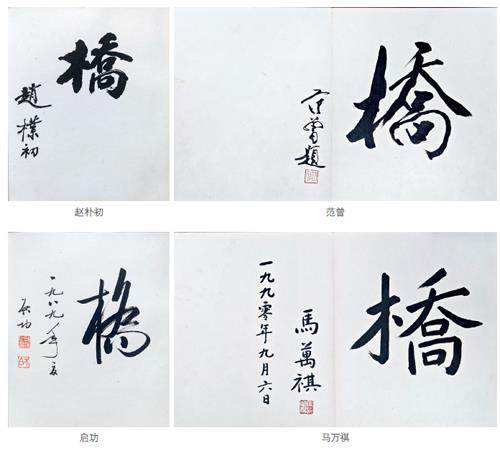 橋
趙樸初
赵朴初
橋
范曾題
范曾
橋
一九八九年夏
启功
启功
橋
馬萬祺
一九九零年九月六日
马万祺